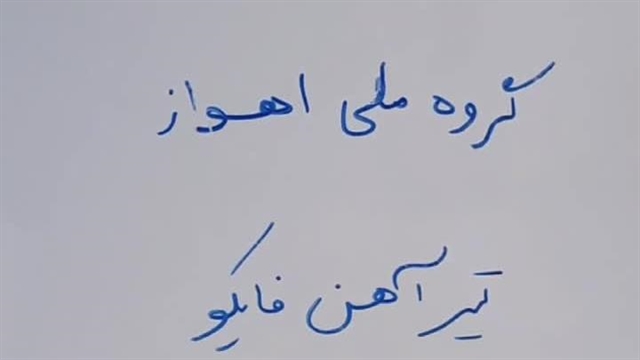 گروه ملی اهواز
تیرآهن فایکو